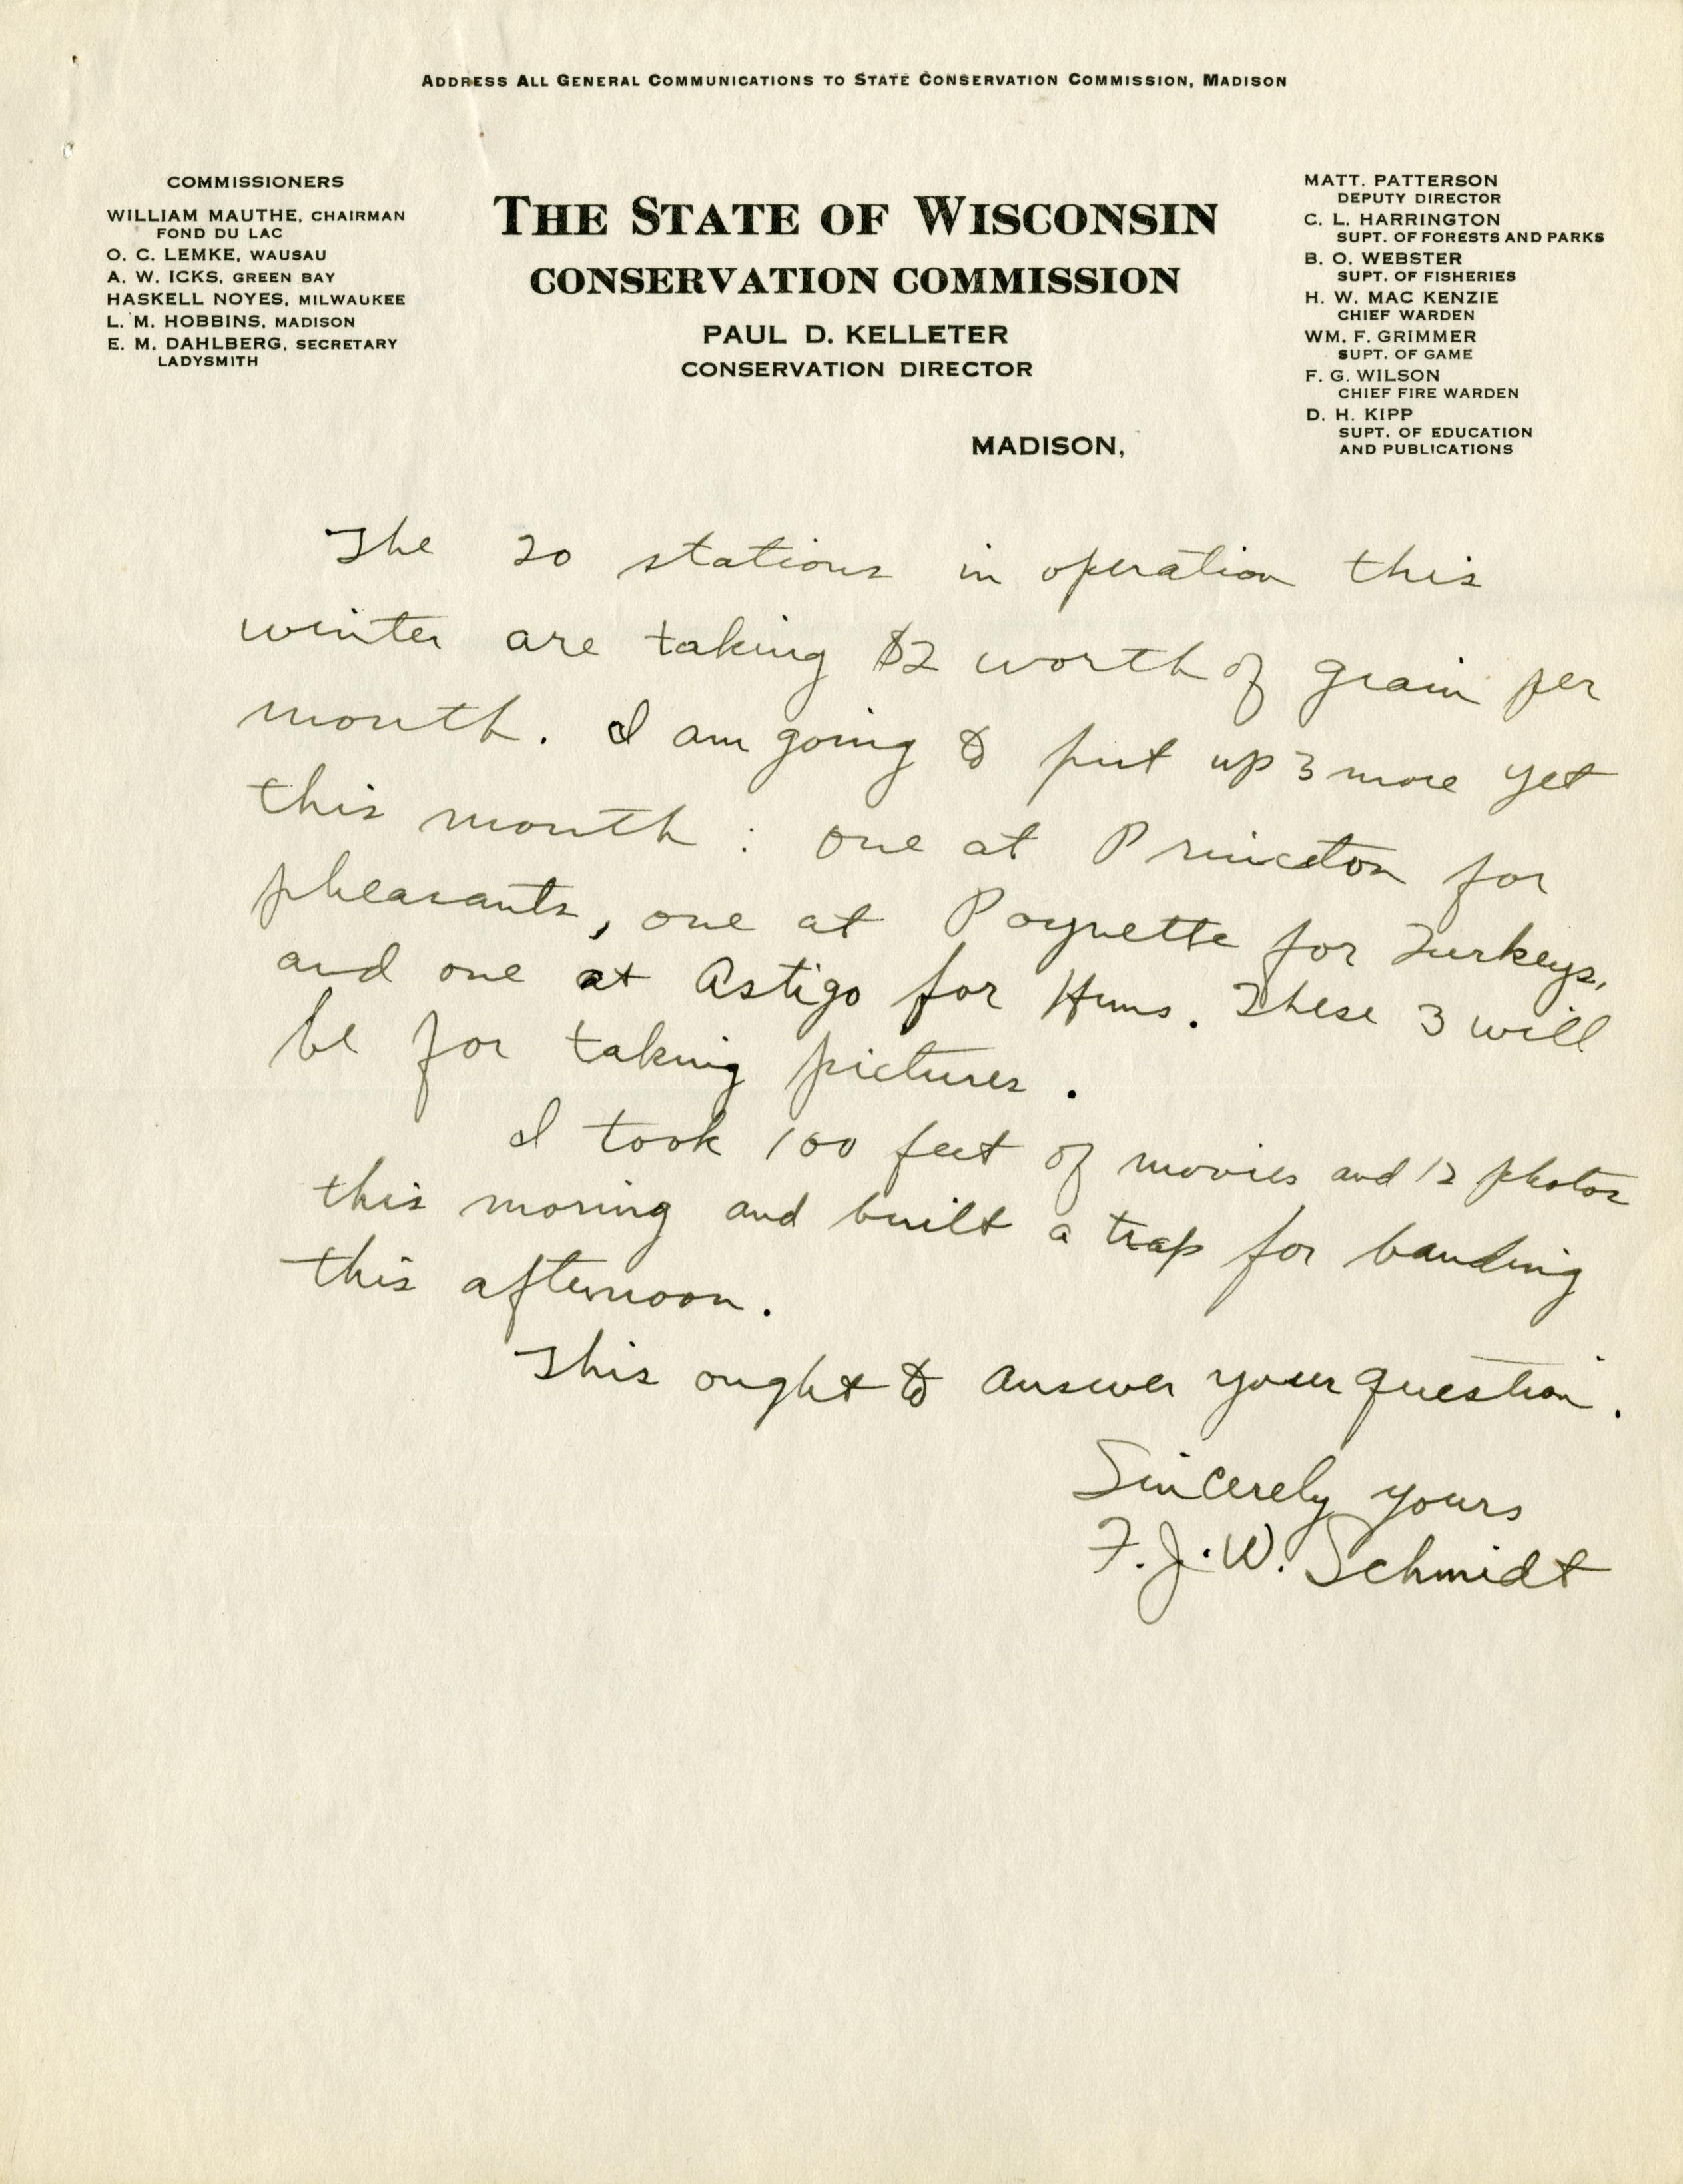 ADDRESS ALL GENERAL COMMUNICATIONS TO STATE CONSERVATION COMMISSION, MADISON
COMMISSIONERS
WILLIAM MAUTHE, CHAIRMAN
FOND DU LAC
O. C. LEMKE, WAUSAU
A. W. ICKS, GREEN BAY
HASKELL NOYES, MILWAUKEE
L. M. HOBBINS, MADISON
E. M. DAHLBERG, SECRETARY
LADYSMITH
THE STATE OF WISCONSIN
CONSERVATION COMMISSION
PAUL D. KELLETER
CONSERVATION DIRECTOR
MADISON,
MATT. PATTERSON
DEPUTY DIRECTOR
C. L. HARRINGTON
SUPT. OF FORESTS AND PARKS
B. O. WEBSTER
SUPT. OF FISHERIES
H. W. MAC KENZIE
CHIEF WARDEN
WM. F. GRIMMER
SUPT. OF GAME
F. G. WILSON
CHIEF FIRE WARDEN
D. H. KIPP
SUPT. OF EDUCATION
AND PUBLICATIONS
The 20 stations in operation this
winter are taking $2 worth of grain per
month. I am going to put up 3 more yet
this month : one at Princeton for
pheasants, one at Poynette for Turkeys,
and one at Astigo for Huns. These 3 will
be for taking pictures.
I took 100 feet of movies and 12 photos
this moring and built a trap for banding
this afternoon.
This ought to answer your question.
Sincerely yours
F. J. W. Schmidt